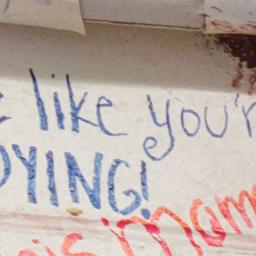 like you'r
DYING!
is mom